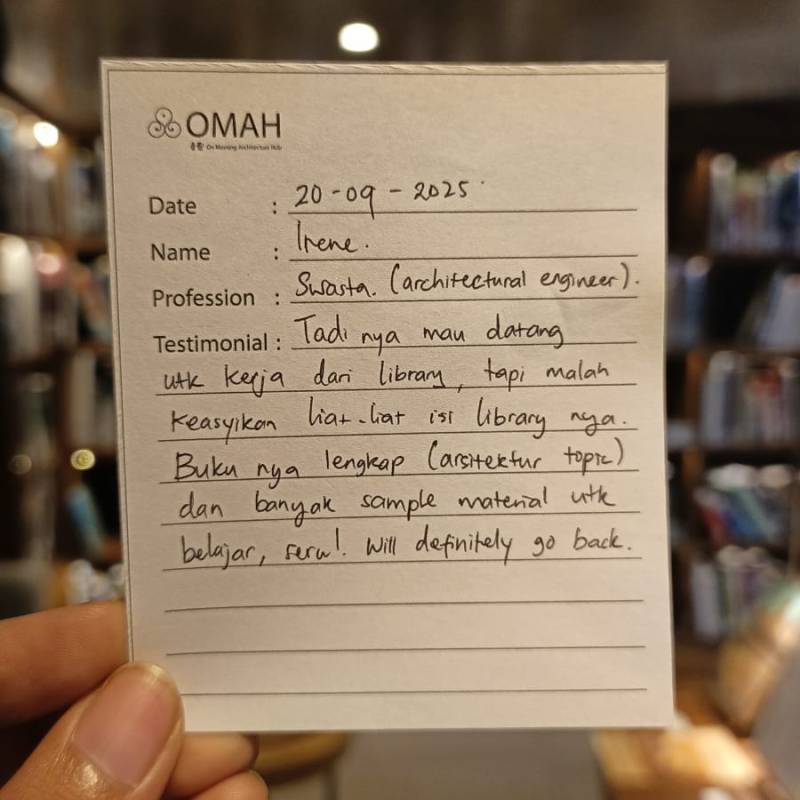 OMAH
On Moving Architecture Hub
Date : 20-09-2025
Name : Irene.
Profession : Swasta. (architectural engineer).
Testimonial : Tadi nya mau datang
utk kerja dari library, tapi malah
keasyikan liat-liat isi library nya.
Buku nya lengkap (arsitektur topic)
dan banyak sample material utk
belajar, seru!. Will definitely go back.